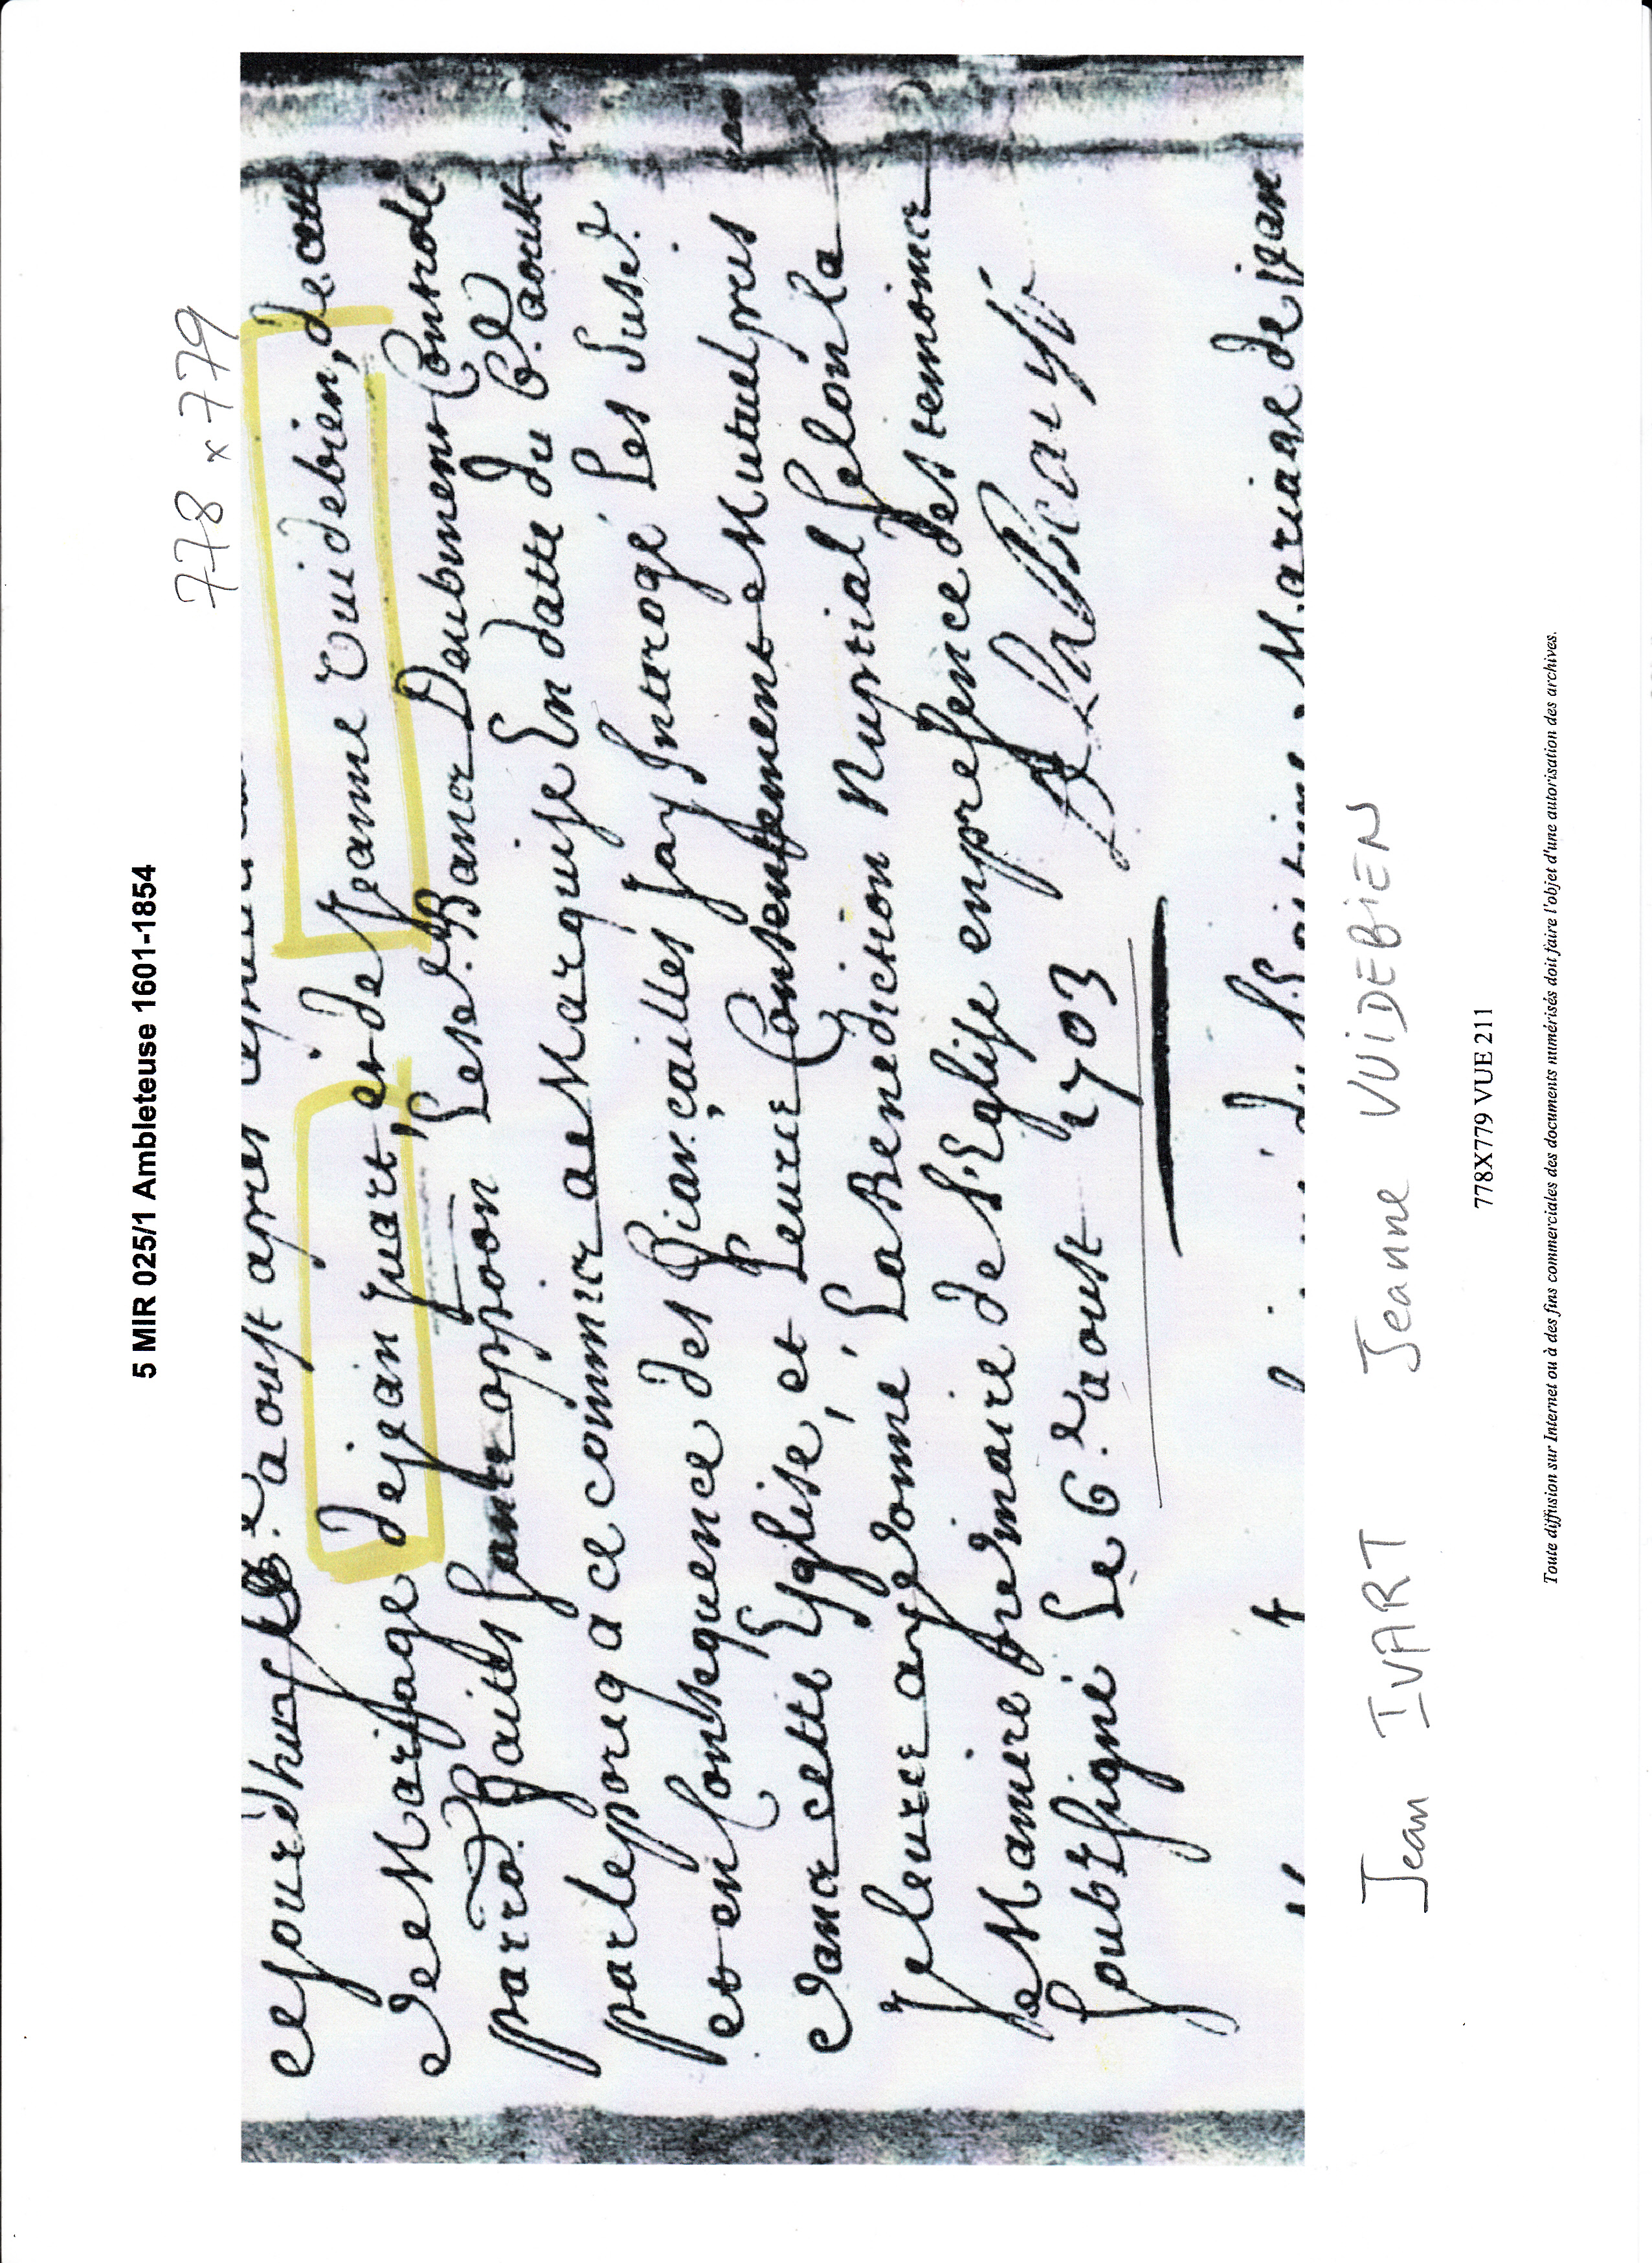 5 MIR 025/1 Ambleteuse 1601-1854
778 x 779
cejourdhuy 6.e aoust apres
de Marijage de jean juart, et de jeanne Vuidebien, de cette
parro. Faites sans opp͞oon Les d. Bancs Deubment Controlé
par le preg a ce commis a Marquise En datte du 6.e aoust
et en Consequence des Fiançailles jay Interogé Les Susd.
dans cette Eglise, et Leurs Consentement Mutuel pris
je leurs ay donné La Benediction Nuptial selon la
Maniere ordinaire de S.te Eglise en presence des temoins
soubsigné Le 6.e aoust 1703
Mariage de jean
Jean IVART Jeanne VUIDEBIEN
778X779 VUE 211
Toute diffusion sur Internet ou à des fins commerciales des documents numérisés doit faire l'objet d'une autorisation des archives.